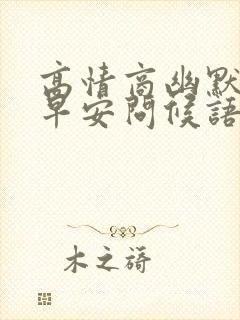 高情商幽默
早安问候語
木之旖